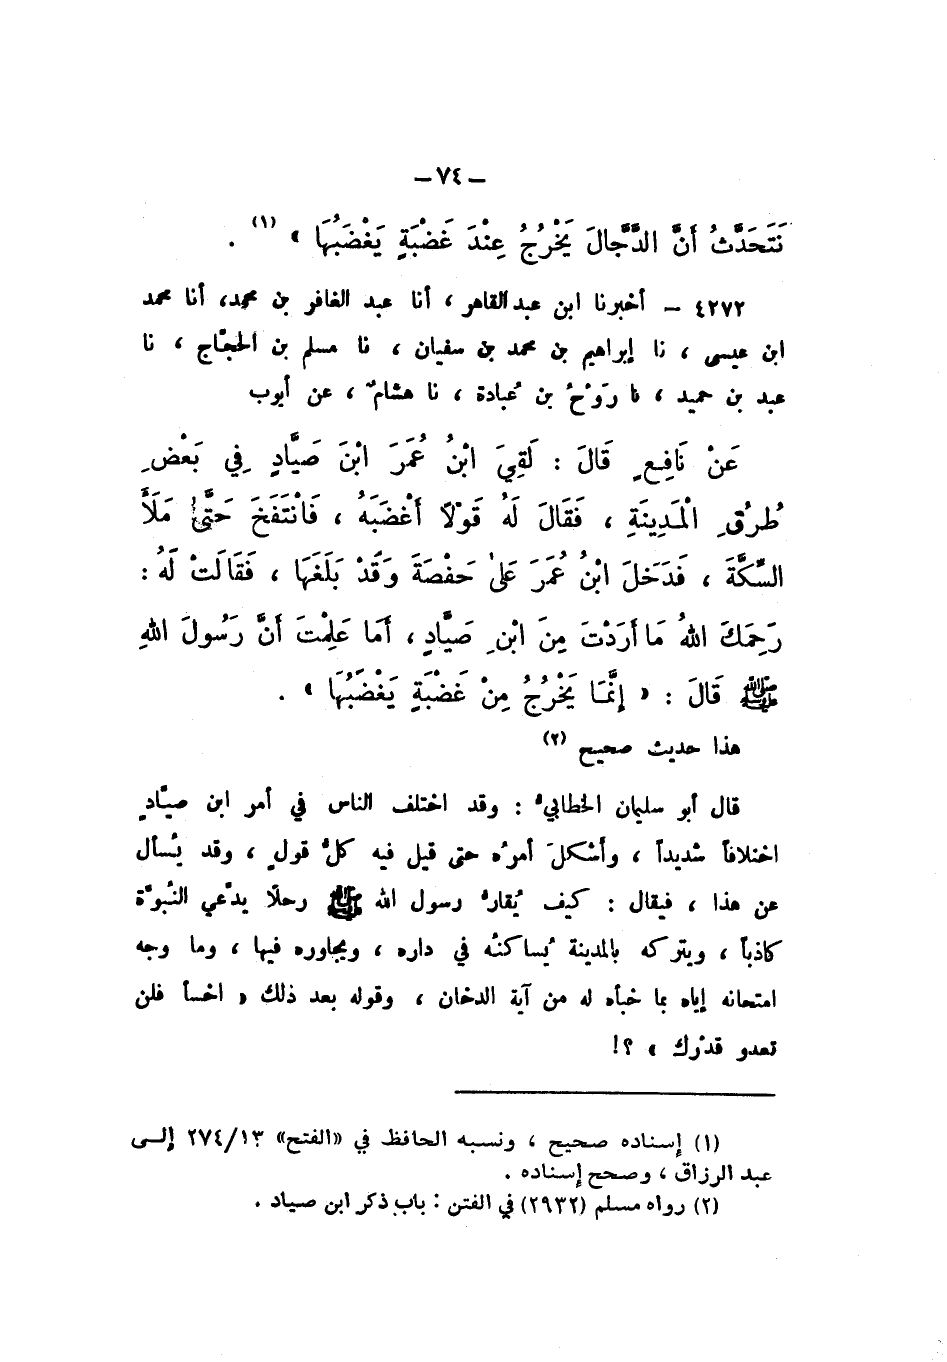 – ٧٤ –
نَتَحَدَّثُ أَنَّ الدَّجَّالَ يَخْرُجُ عِنْدَ غَضْبَةٍ يَغْضَبُهَا » (١) .
٤٢٧٢ – أخبرنا ابن عبد القاهر ، أنا عبد الغافر بن محمد، أنا محمد
ابن عيسى ، نا إبراهيم بن محمد بن سفيان ، نا مسلم بن الحجّاج ، نا
عبد بن حميد ، نا رَوْحُ بن عُبادة ، نا هشامٌ ، عن أيوب
عَنْ نَافِعٍ قَالَ : لَقِيَ ابْنُ عُمَرَ ابْنَ صَيَّادٍ فِي بَعْضِ
طُرُقِ الْمَدِينَةِ ، فَقَالَ لَهُ قَوْلًا أَغْضَبَهُ ، فَانْتَفَخَ حَتَّى مَلَأَ
السِّكَّةَ ، فَدَخَلَ ابْنُ عُمَرَ عَلَى حَفْصَةَ وَقَدْ بَلَغَهَا ، فَقَالَتْ لَهُ :
رَحِمَكَ اللهُ مَا أَرَدْتَ مِنَ ابْنِ صَيَّادٍ ، أَمَا عَلِمْتَ أَنَّ رَسُولَ اللهِ
ﷺ قَالَ : « إِنَّمَا يَخْرُجُ مِنْ غَضْبَةٍ يَغْضَبُهَا » .
هذا حديث صحيح (٢)
قال أبو سليمان الخطابيُّ : وقد اختلف الناس في أمر ابن صيّادٍ
اختلافاً شديداً ، وأشكلَ أمرُه حتى قيل فيه كلُّ قولٍ ، وقد يُسأل
عن هذا ، فيقال : كيف يُقارُّ رسول الله ﷺ رجلًا يدّعي النبُوّة
كاذباً ، ويتركه بالمدينة يُساكنُه في داره ، ويجاوره فيها ، وما وجه
امتحانه إياه بما خبأه له من آية الدخان ، وقوله بعد ذلك « اخسأ فلن
تعدو قدْرك » ؟!
(١) إسناده صحيح ، ونسبه الحافظ في «الفتح» ٢٧٤/١٣ إلى
عبد الرزاق ، وصحح إسناده .
(٢) رواه مسلم (٢٩٣٢) في الفتن : باب ذكر ابن صياد .